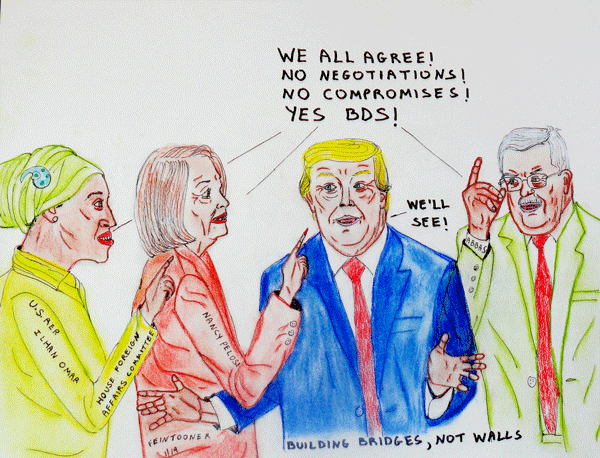 WE ALL AGREE!
NO NEGOTIATIONS!
NO COMPROMISES!
YES BDS!
WE'LL
SEE!
U.S. REP
ILHAN OMAR
HOUSE FOREIGN
AFFAIRS COMMITTEE
NANCY PELOSI
FEINTOONER
1/19
BUILDING BRIDGES, NOT WALLS